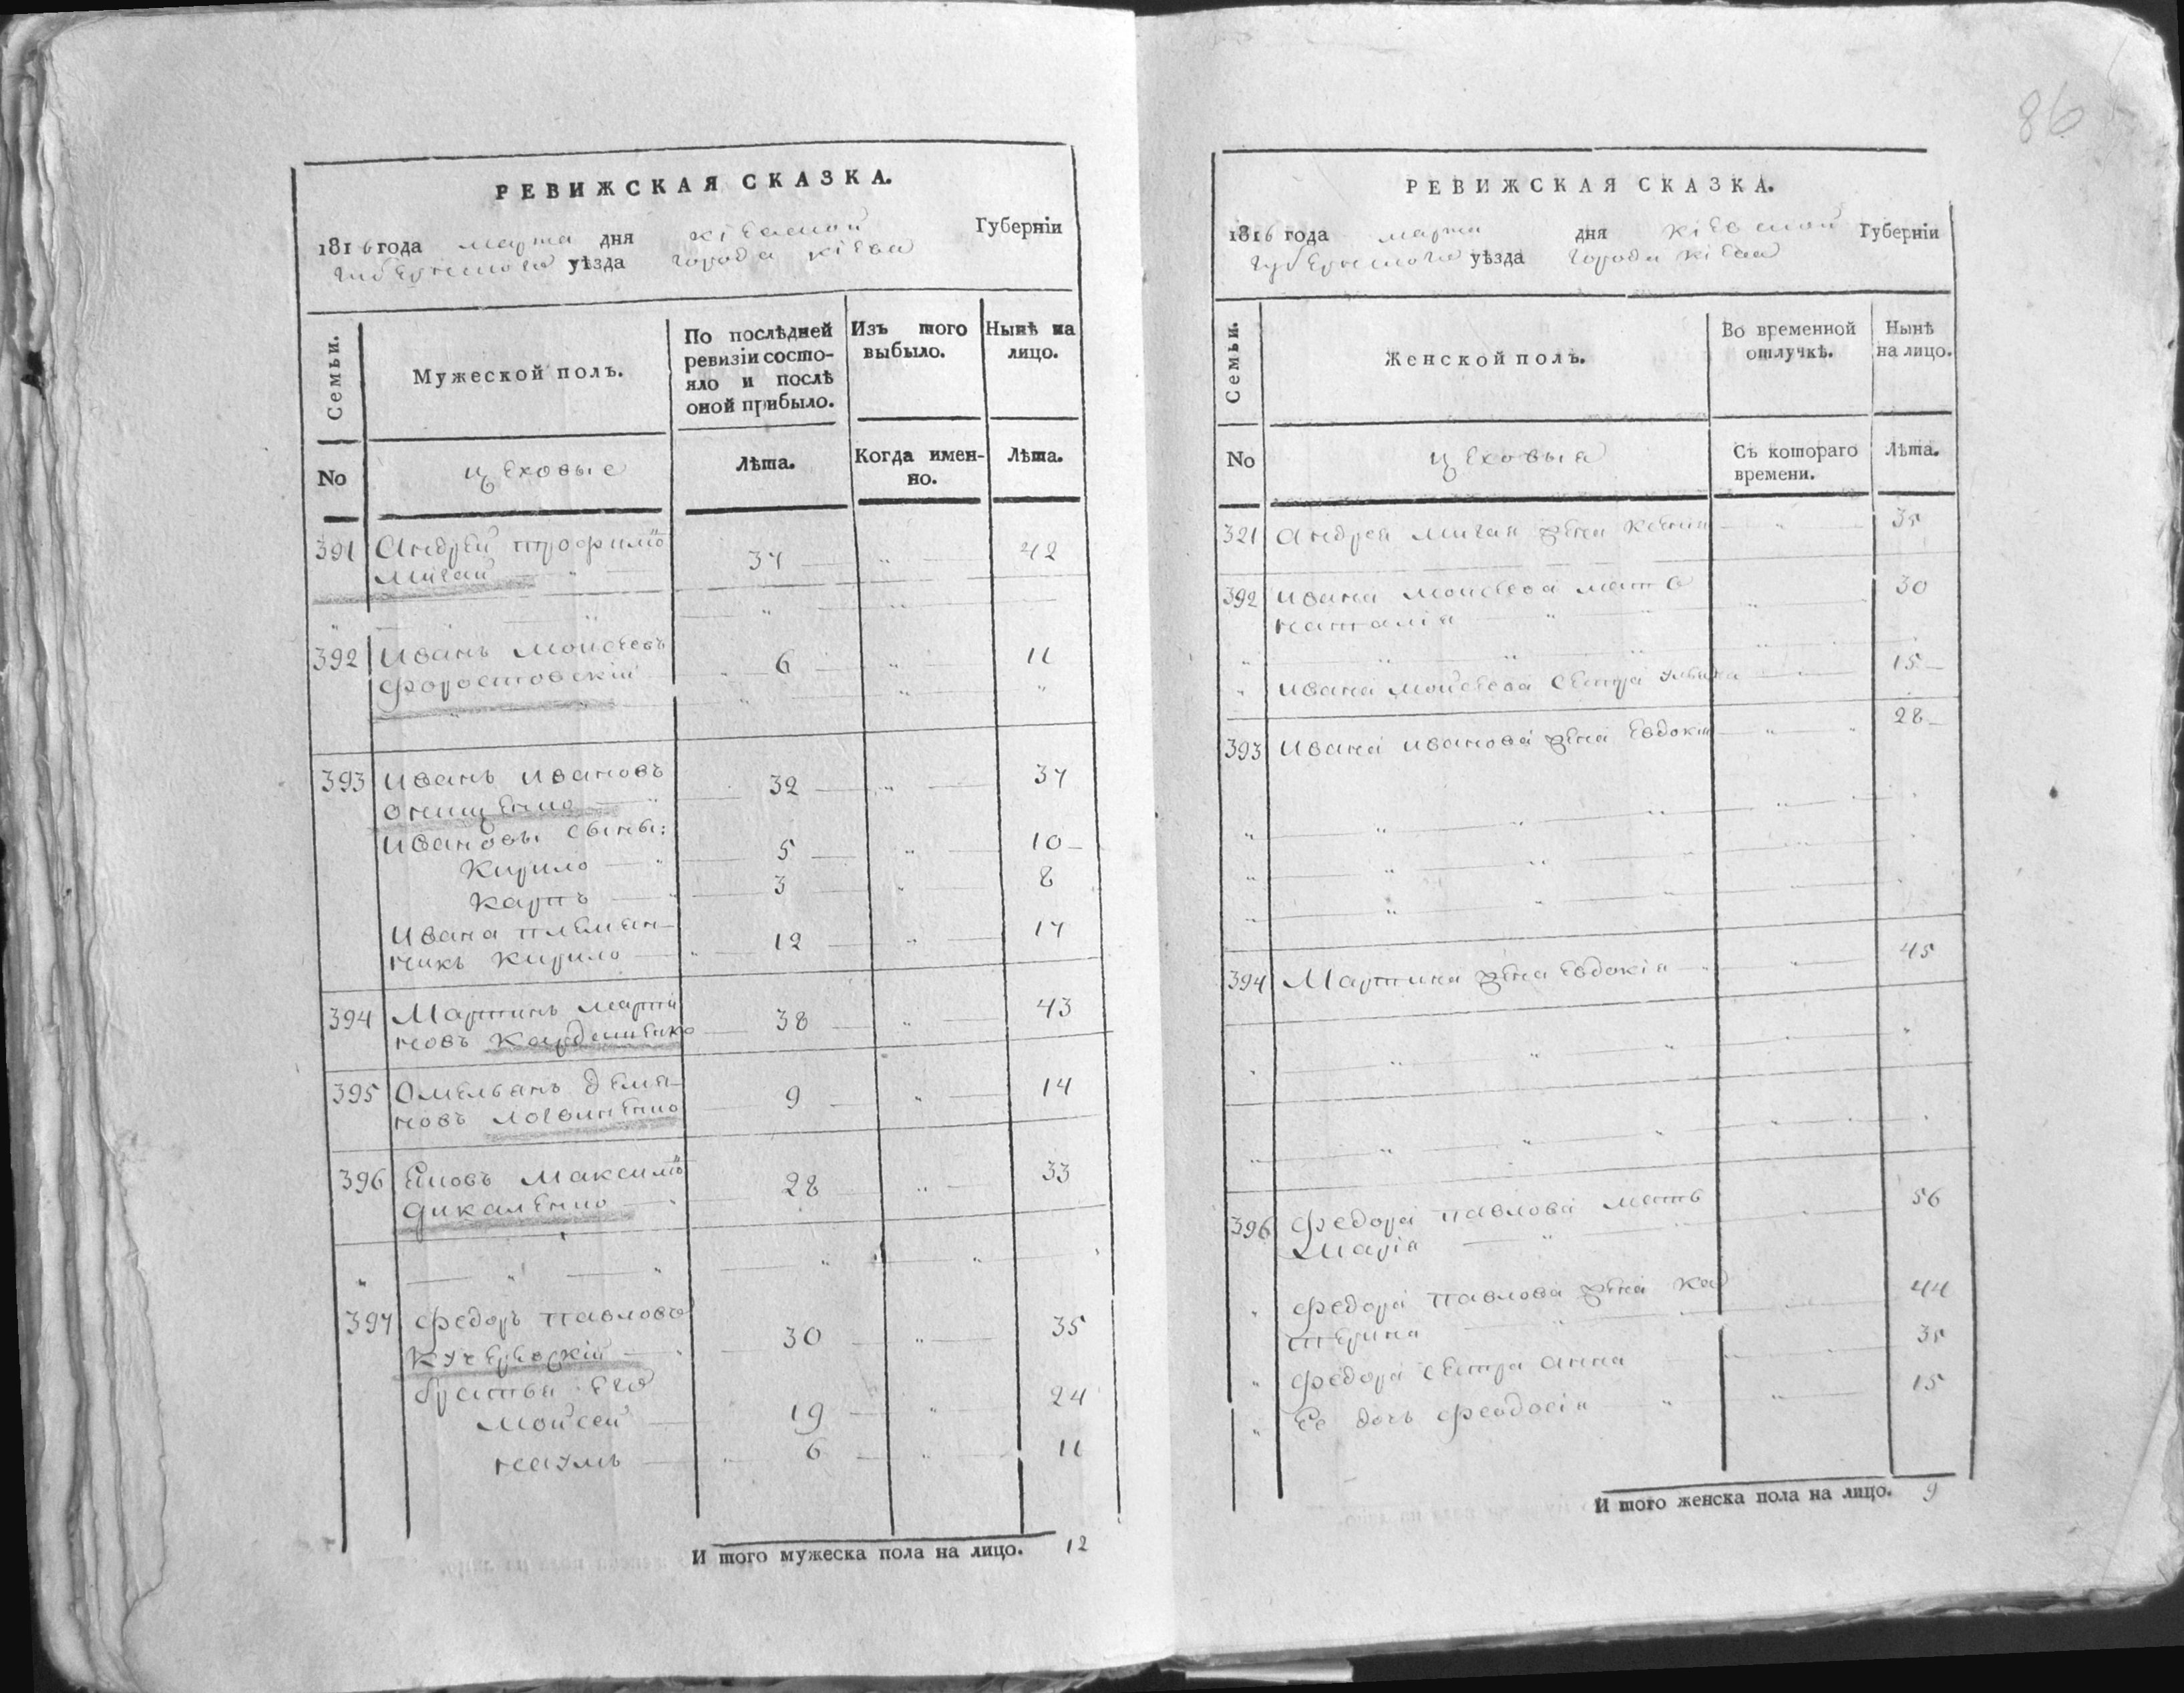 86
РЕВИЖСКАЯ СКАЗКА.
1816 года марта дня кіевской Губерніи
губернскаго уѣзда города кіева
Семьи.
Мужеской полъ.
По послѣдней ревизіи состояло и послѣ оной прибыло.
Изъ того выбыло.
Нынѣ на лицо.
No
цеховые
Лѣта.
Когда именно.
Лѣта.
391 Андрей трофимо͏въ 37 42
Мигай
392 Иванъ Моисеевъ 6 11
Форостовскій
393 Иванъ Ивановъ 32 37
Онищенко
Ивановы сыны:
Кирило 5 10
Карпъ 3 8
Ивана племян-
никъ Кирило 12 17
394 Мартинъ марти
новъ 38 43
395 Омельянъ демя-
новъ логвиненко 9 14
396 Яковъ Максимовъ 28 33
Дикаленко
397 Федоръ павловъ 30 35
Кучеревскій
братья его
Моисей 19 24
наумъ 6 11
И того мужеска пола на лицо. 12
РЕВИЖСКАЯ СКАЗКА.
1816 года марта дня кіевской Губерніи
губернскаго уѣзда города кіева
Семьи.
Женской полъ.
Во временной отлучкѣ.
Нынѣ на лицо.
No
цеховыя
Съ котораго времени.
Лѣта.
321 Андрея мигая жена Ксенія 35
392 Ивана моисеева мать 30
наталія
Ивана моисеева сестра ульяна 15
393 Ивана иванова жена Евдокія 28
394 Мартина жена Евдокія 45
396 Федора павлова мать 56
Марія
Федора павлова жена Ка 44
терина
Федора сестра анна 35
Ее дочь феодосія 15
И того женска пола на лицо. 9